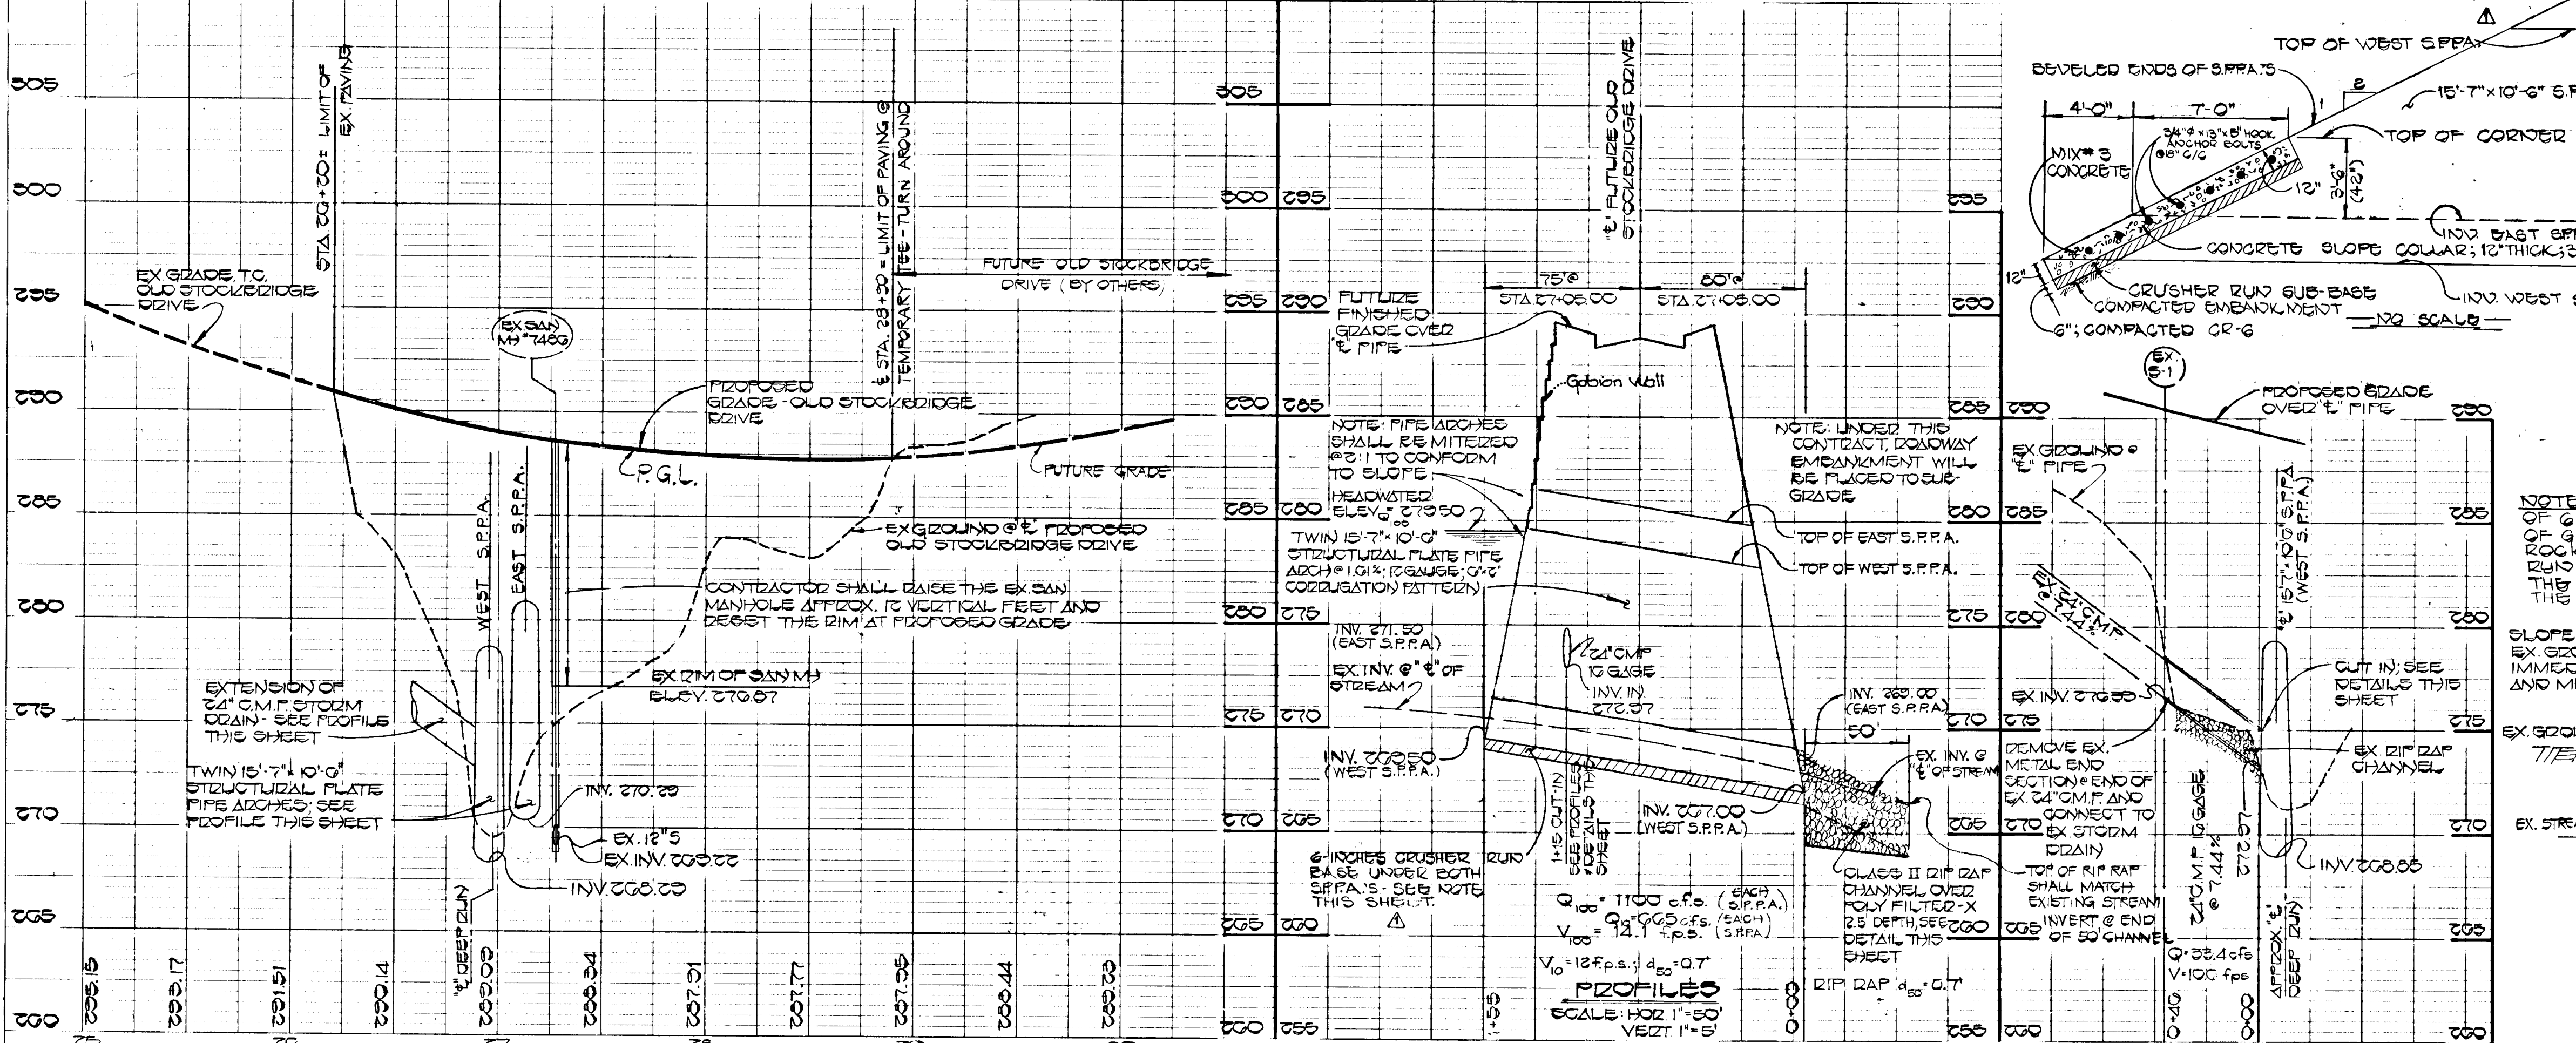 305
300
295
290
285
280
275
270
265
260
STA. 26+20± LIMIT OF
EX. PAVING
EX GRADE, T.C.
OLD STOCKBRIDGE
DRIVE
EX. SAN
MH #7486
PROPOSED
GRADE - OLD STOCKBRIDGE
DRIVE
P.G.L.
℄ STA. 28+90 = LIMIT OF PAVING @
TEMPORARY TEE - TURN AROUND
FUTURE OLD STOCKBRIDGE
DRIVE (BY OTHERS)
FUTURE GRADE
EX GROUND @ "℄" PROPOSED
OLD STOCKBRIDGE DRIVE
WEST S.P.P.A.
EAST S.P.P.A.
CONTRACTOR SHALL RAISE THE EX. SAN
MANHOLE APPROX. 12 VERTICAL FEET AND
RESET THE RIM AT PROPOSED GRADE
EX RIM OF SAN MH
ELEV. 276.87
EXTENSION OF
24" C.M.P. STORM
DRAIN - SEE PROFILE
THIS SHEET
TWIN 15'-7" x 10'-6"
STRUCTURAL PLATE
PIPE ARCHES; SEE
PROFILE THIS SHEET
INV. 270.29
EX. 12" S
EX. INV. 269.22
INV. 268.29
"℄" DEEP RUN
295.15
293.17
291.51
290.14
289.09
288.34
287.91
287.77
287.95
288.44
289.23
305
300 295
295 290
290 285
285 280
280 275
275 270
270 265
265 260
260 255
"℄" FUTURE OLD
STOCKBRIDGE DRIVE
75'@
STA 27+05.00
80'@
STA. 27+05.00
FUTURE
FINISHED
GRADE OVER
"℄" PIPE
Gabion Wall
NOTE: PIPE ARCHES
SHALL BE MITERED
@ 2:1 TO CONFORM
TO SLOPE
HEADWATER
ELEV Q100 = 279.50
TWIN 15'-7" x 10'-6"
STRUCTURAL PLATE PIPE
ARCH @ 1.61%; 12 GAUGE; 6"x2"
CORRUGATION PATTERN
NOTE: UNDER THIS
CONTRACT, ROADWAY
EMBANKMENT WILL
BE PLACED TO SUB-
GRADE
TOP OF EAST S.P.P.A.
TOP OF WEST S.P.P.A.
INV. 271.50
(EAST S.P.P.A.)
EX. INV. @ "℄" OF
STREAM
24" CMP
16 GAGE
INV. IN
272.97
INV. 269.00
(EAST S.P.P.A.)
50'
INV. 269.50
(WEST S.P.P.A.)
EX. INV. @
"℄" OF STREAM
INV. 267.00
(WEST S.P.P.A.)
1+15 CUT-IN
SEE PROFILES
& DETAILS THIS
SHEET
6-INCHES CRUSHER RUN
BASE UNDER BOTH
S.P.P.A.'S - SEE NOTE
THIS SHEET.
1
Q100 = 1100 c.f.s. (EACH S.P.P.A.)
Q10 = 665 c.f.s. (EACH S.P.P.A.)
V100 = 14.1 f.p.s.
V10 = 12 f.p.s.; d50 = 0.7'
PROFILES
SCALE: HOR. 1"=50'
VERT. 1"=5'
1+55
0+00
CLASS II RIP RAP
CHANNEL OVER
POLY FILTER-X
2.5' DEPTH, SEE
DETAIL THIS
SHEET
RIP RAP d50 = 0.7'
TOP OF RIP RAP
SHALL MATCH
EXISTING STREAM
INVERT @ END
OF 50' CHANNEL
295
290
285 290
280 285
275 280
270 275
265 270
260 265
255 260
1
TOP OF WEST S.P.P.A.
BEVELED ENDS OF S.P.P.A.'S
2
1
15'-7" x 10'-6" S.P
4'-0"
7'-0"
3/4"Ø x 18" x 5" HOOK
ANCHOR BOLTS
@ 18" C/C
TOP OF CORNER
MIX #3
CONCRETE
12"
3'-6"
(42")
INV. EAST SPP
CONCRETE SLOPE COLLAR; 12" THICK; 3
12"
CRUSHER RUN SUB-BASE
COMPACTED EMBANKMENT
INV. WEST S
6"; COMPACTED CR-6
NO SCALE
EX.
S-1
PROPOSED GRADE
OVER "℄" PIPE
EX. GROUND @
"℄" PIPE
EX. 24" C.M.P.
@ 7.44%
℄ 15'-7" x 10'-6" S.P.P.A.
(WEST S.P.P.A.)
CUT IN; SEE
DETAILS THIS
SHEET
EX. INV. 276.39
REMOVE EX.
METAL END
SECTION @ END OF
EX. 24" C.M.P. AND
CONNECT TO
EX. STORM
DRAIN
EX. RIP RAP
CHANNEL
24" C.M.P. 16 GAGE
@ 7.44%
272.97
INV. 268.85
Q=33.4 cfs
V=10.6 fps
0+46
0+00
APPROX. "℄"
DEEP RUN
290
285
280
275
270
265
260
NOTE
OF 6
OF G
ROCK
RUN
THE
THE
SLOPE
EX. GRO
IMMER
AND M
EX. GROU
EX. STRE